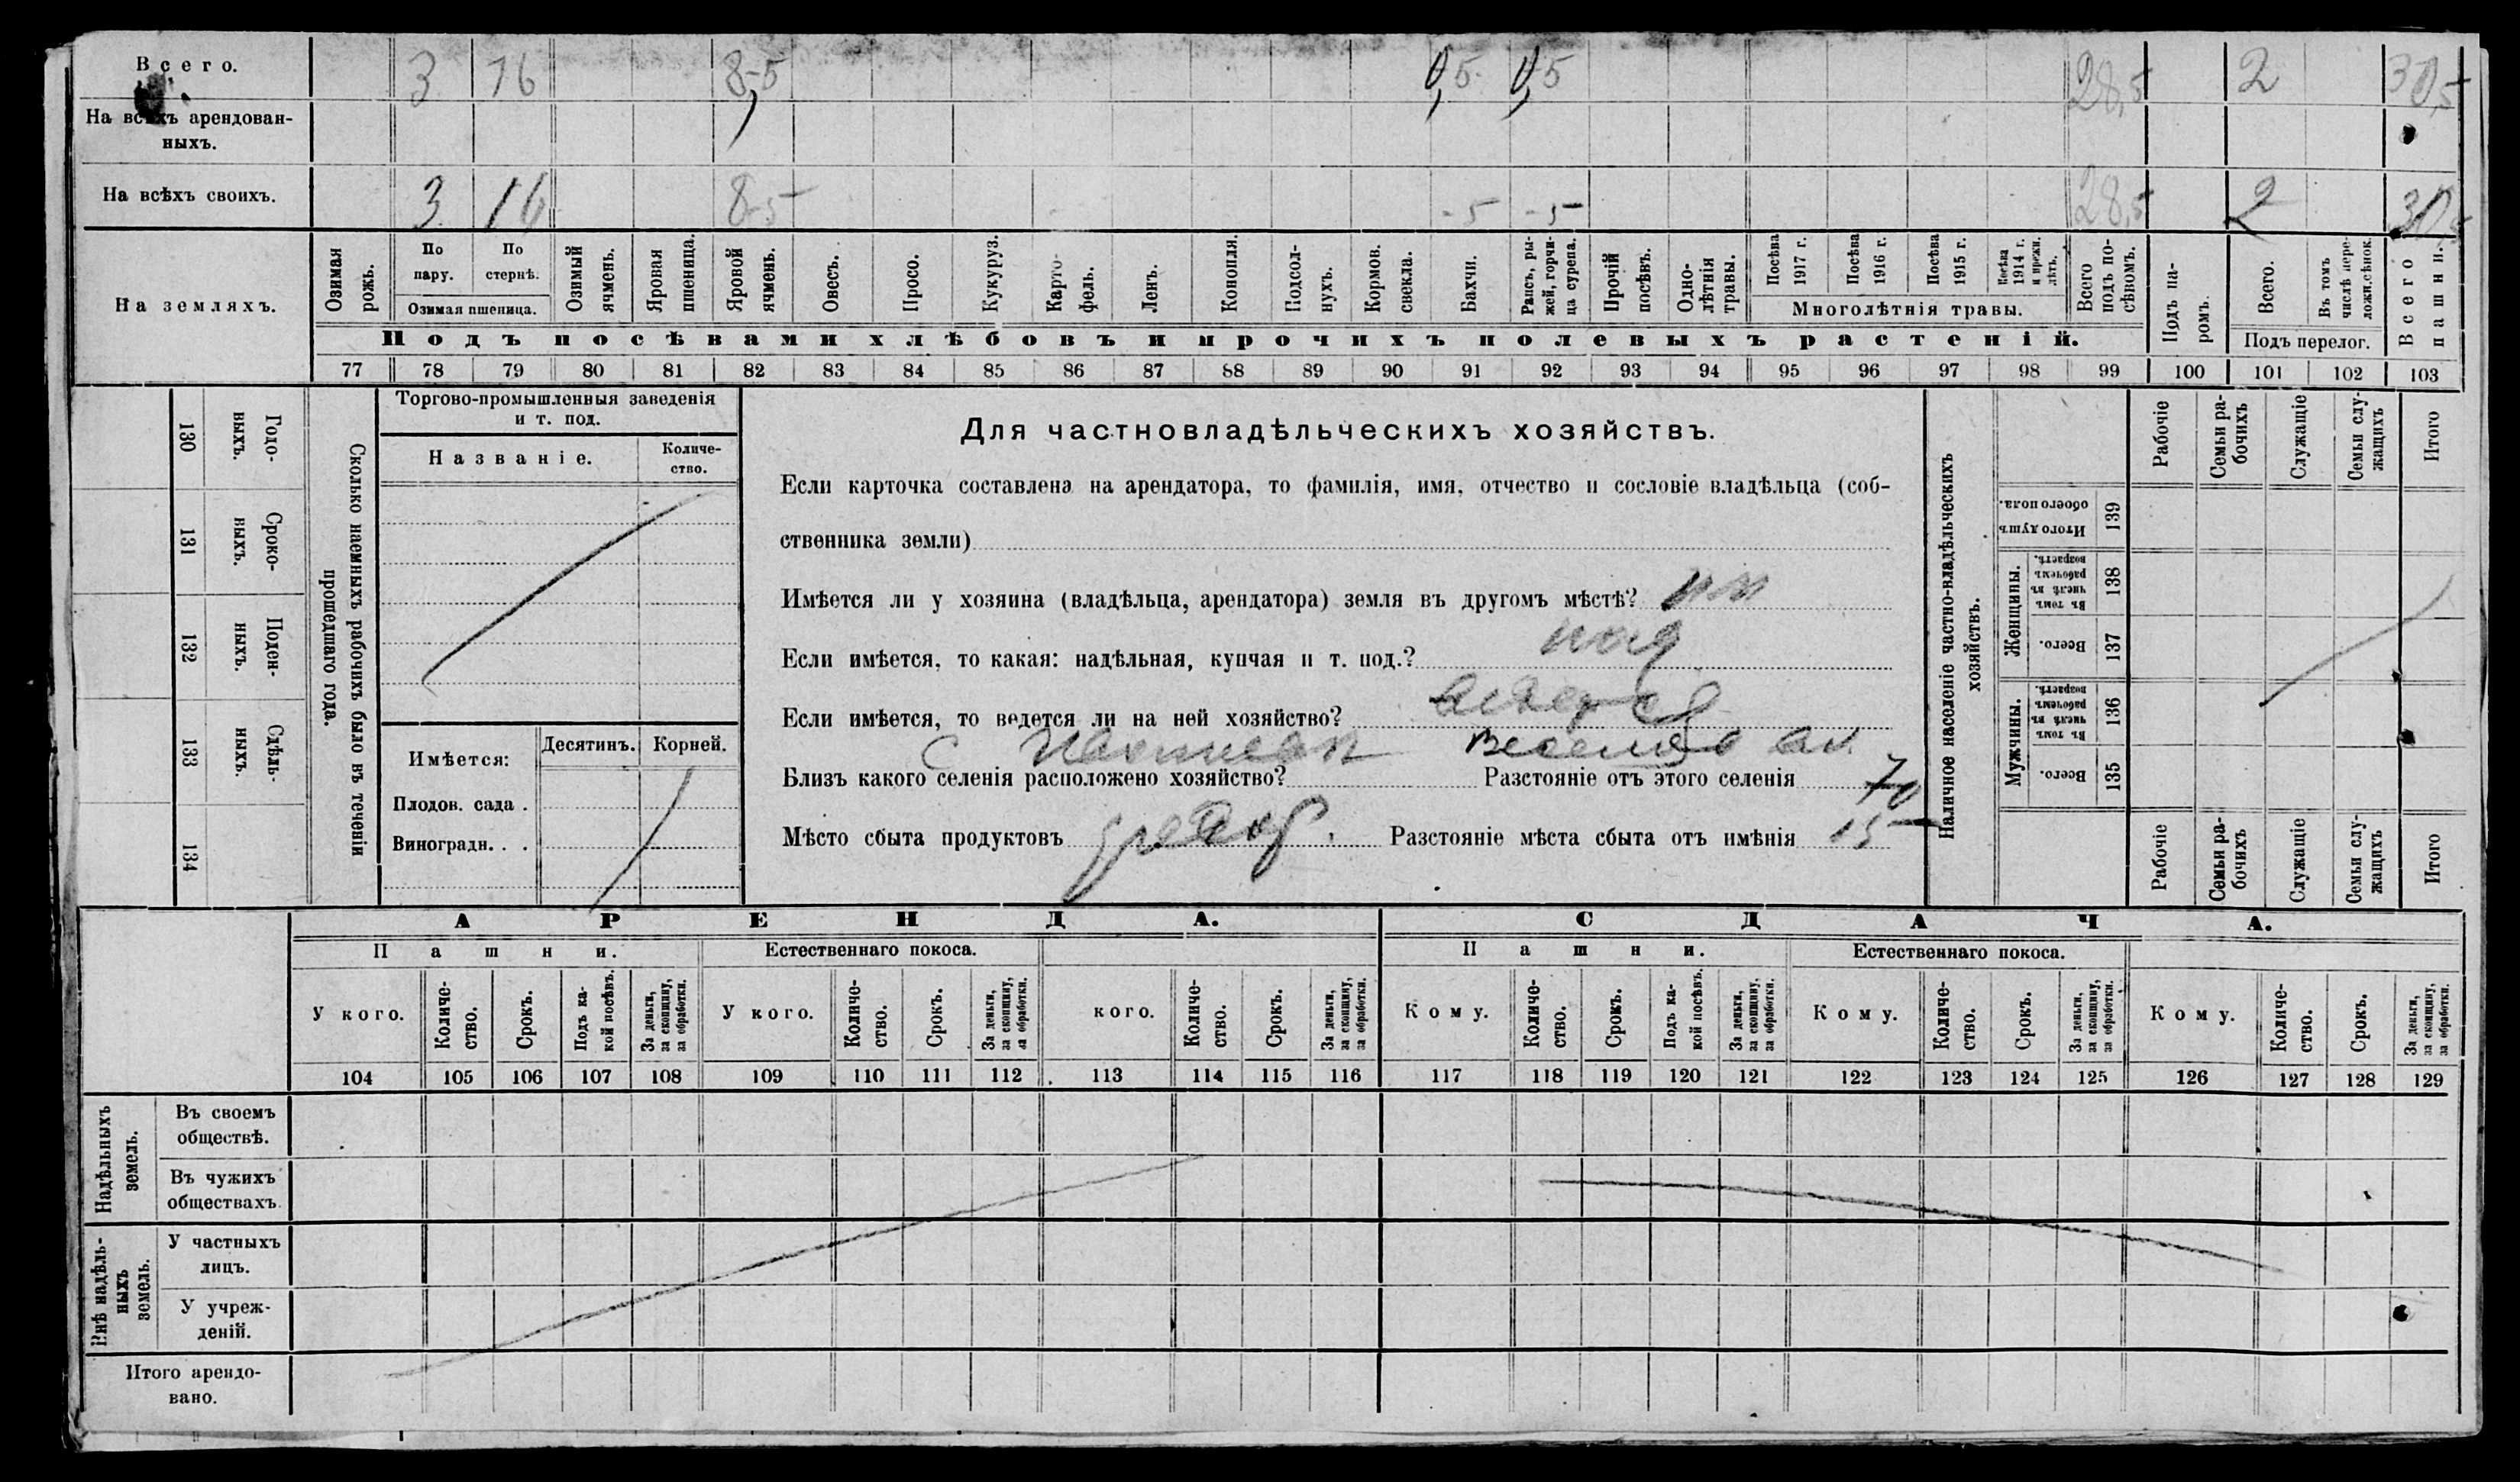 Всего. 3 16 8,5 0,5 0,5 28,5 2 30,5
На всѣхъ арендован-
ныхъ.
На всѣхъ своихъ. 3 16 8-5 -5 -5 28,5 2 30,5
На земляхъ.
Озимая рожь.
По пару.
По стернѣ.
Озимая пшеница.
Озимый ячмень.
Яровая пшеница.
Яровой ячмень.
Овесъ.
Просо.
Кукуруз.
Карто-
фель.
Ленъ.
Конопля.
Подсол-
нухъ.
Кормов. свекла.
Бахчи.
Рапсъ, ры-
жей, горчи-
ца сурепа.
Прочій посѣвъ.
Одно-
лѣтнія травы.
Посѣва 1917 г.
Посѣва 1916 г.
Посѣва 1915 г.
Посѣва 1914 г. и прежн. лѣтъ.
Многолѣтнія травы.
Всего подъ по-
сѣвомъ.
Подъ па-
ромъ.
Всего.
Въ томъ числѣ пере-
лож. сѣнок.
Подъ перелог.
Всего пашни.
Подъ посѣвами хлѣбовъ и прочихъ полевыхъ растеній.
77 78 79 80 81 82 83 84 85 86 87 88 89 90 91 92 93 94 95 96 97 98 99 100 101 102 103
Сколько наемныхъ рабочихъ было въ теченіи
прошедшаго года.
Годо-
выхъ.
130
Сроко-
выхъ.
131
Поден-
ныхъ.
132
Сдѣль-
ныхъ.
133
134
Торгово-промышленныя заведенія
и т. под.
Названіе.
Количе-
ство.
Имѣется:
Десятинъ. Корней.
Плодов. сада .
Виноградн. . .
Для частновладѣльческихъ хозяйствъ.
Если карточка составлена на арендатора, то фамилія, имя, отчество и сословіе владѣльца (соб-
ственника земли)
Имѣется ли у хозяина (владѣльца, арендатора) земля въ другомъ мѣстѣ?
Если имѣется, то какая: надѣльная, купчая и т. под.? над
Если имѣется, то ведется ли на ней хозяйство?
Близъ какого селенія расположено хозяйство? Разстояніе отъ этого селенія 70
Мѣсто сбыта продуктовъ Разстояніе мѣста сбыта отъ имѣнія 15
Наличное населеніе частно-владѣльческихъ
хозяйствъ.
Рабочіе
Семьи ра-
бочихъ
Служащіе
Семьи слу-
жащихъ
Итого
Итого душъ обоего пола.
139
Женщины.
Въ томъ числѣ въ рабочемъ возрастѣ.
138
Всего.
137
Мужчины.
Въ томъ числѣ въ рабочемъ возрастѣ.
136
Всего.
135
Рабочіе
Семьи ра-
бочихъ
Служащіе
Семьи слу-
жащихъ
Итого
АРЕНДА. СДАЧА.
Пашни. Естественнаго покоса. Пашни. Естественнаго покоса.
У кого.
Количе-
ство.
Срокъ.
Подъ ка-
кой посѣвъ.
За деньги, за скопщину, за обработки.
У кого.
Количе-
ство.
Срокъ.
За деньги, за скопщину, за обработки.
кого.
Количе-
ство.
Срокъ.
За деньги, за скопщину, за обработки.
Кому.
Количе-
ство.
Срокъ.
Подъ ка-
кой посѣвъ.
За деньги, за скопщину, за обработки.
Кому.
Количе-
ство.
Срокъ.
За деньги, за скопщину, за обработки.
Кому.
Количе-
ство.
Срокъ.
За деньги, за скопщину, за обработки.
104 105 106 107 108 109 110 111 112 113 114 115 116 117 118 119 120 121 122 123 124 125 126 127 128 129
Надѣльныхъ
земель.
Въ своемъ
обществѣ.
Въ чужихъ
обществахъ
Внѣ надѣль-
ныхъ
земель.
У частныхъ
лицъ.
У учреж-
деній.
Итого арендо-
вано.